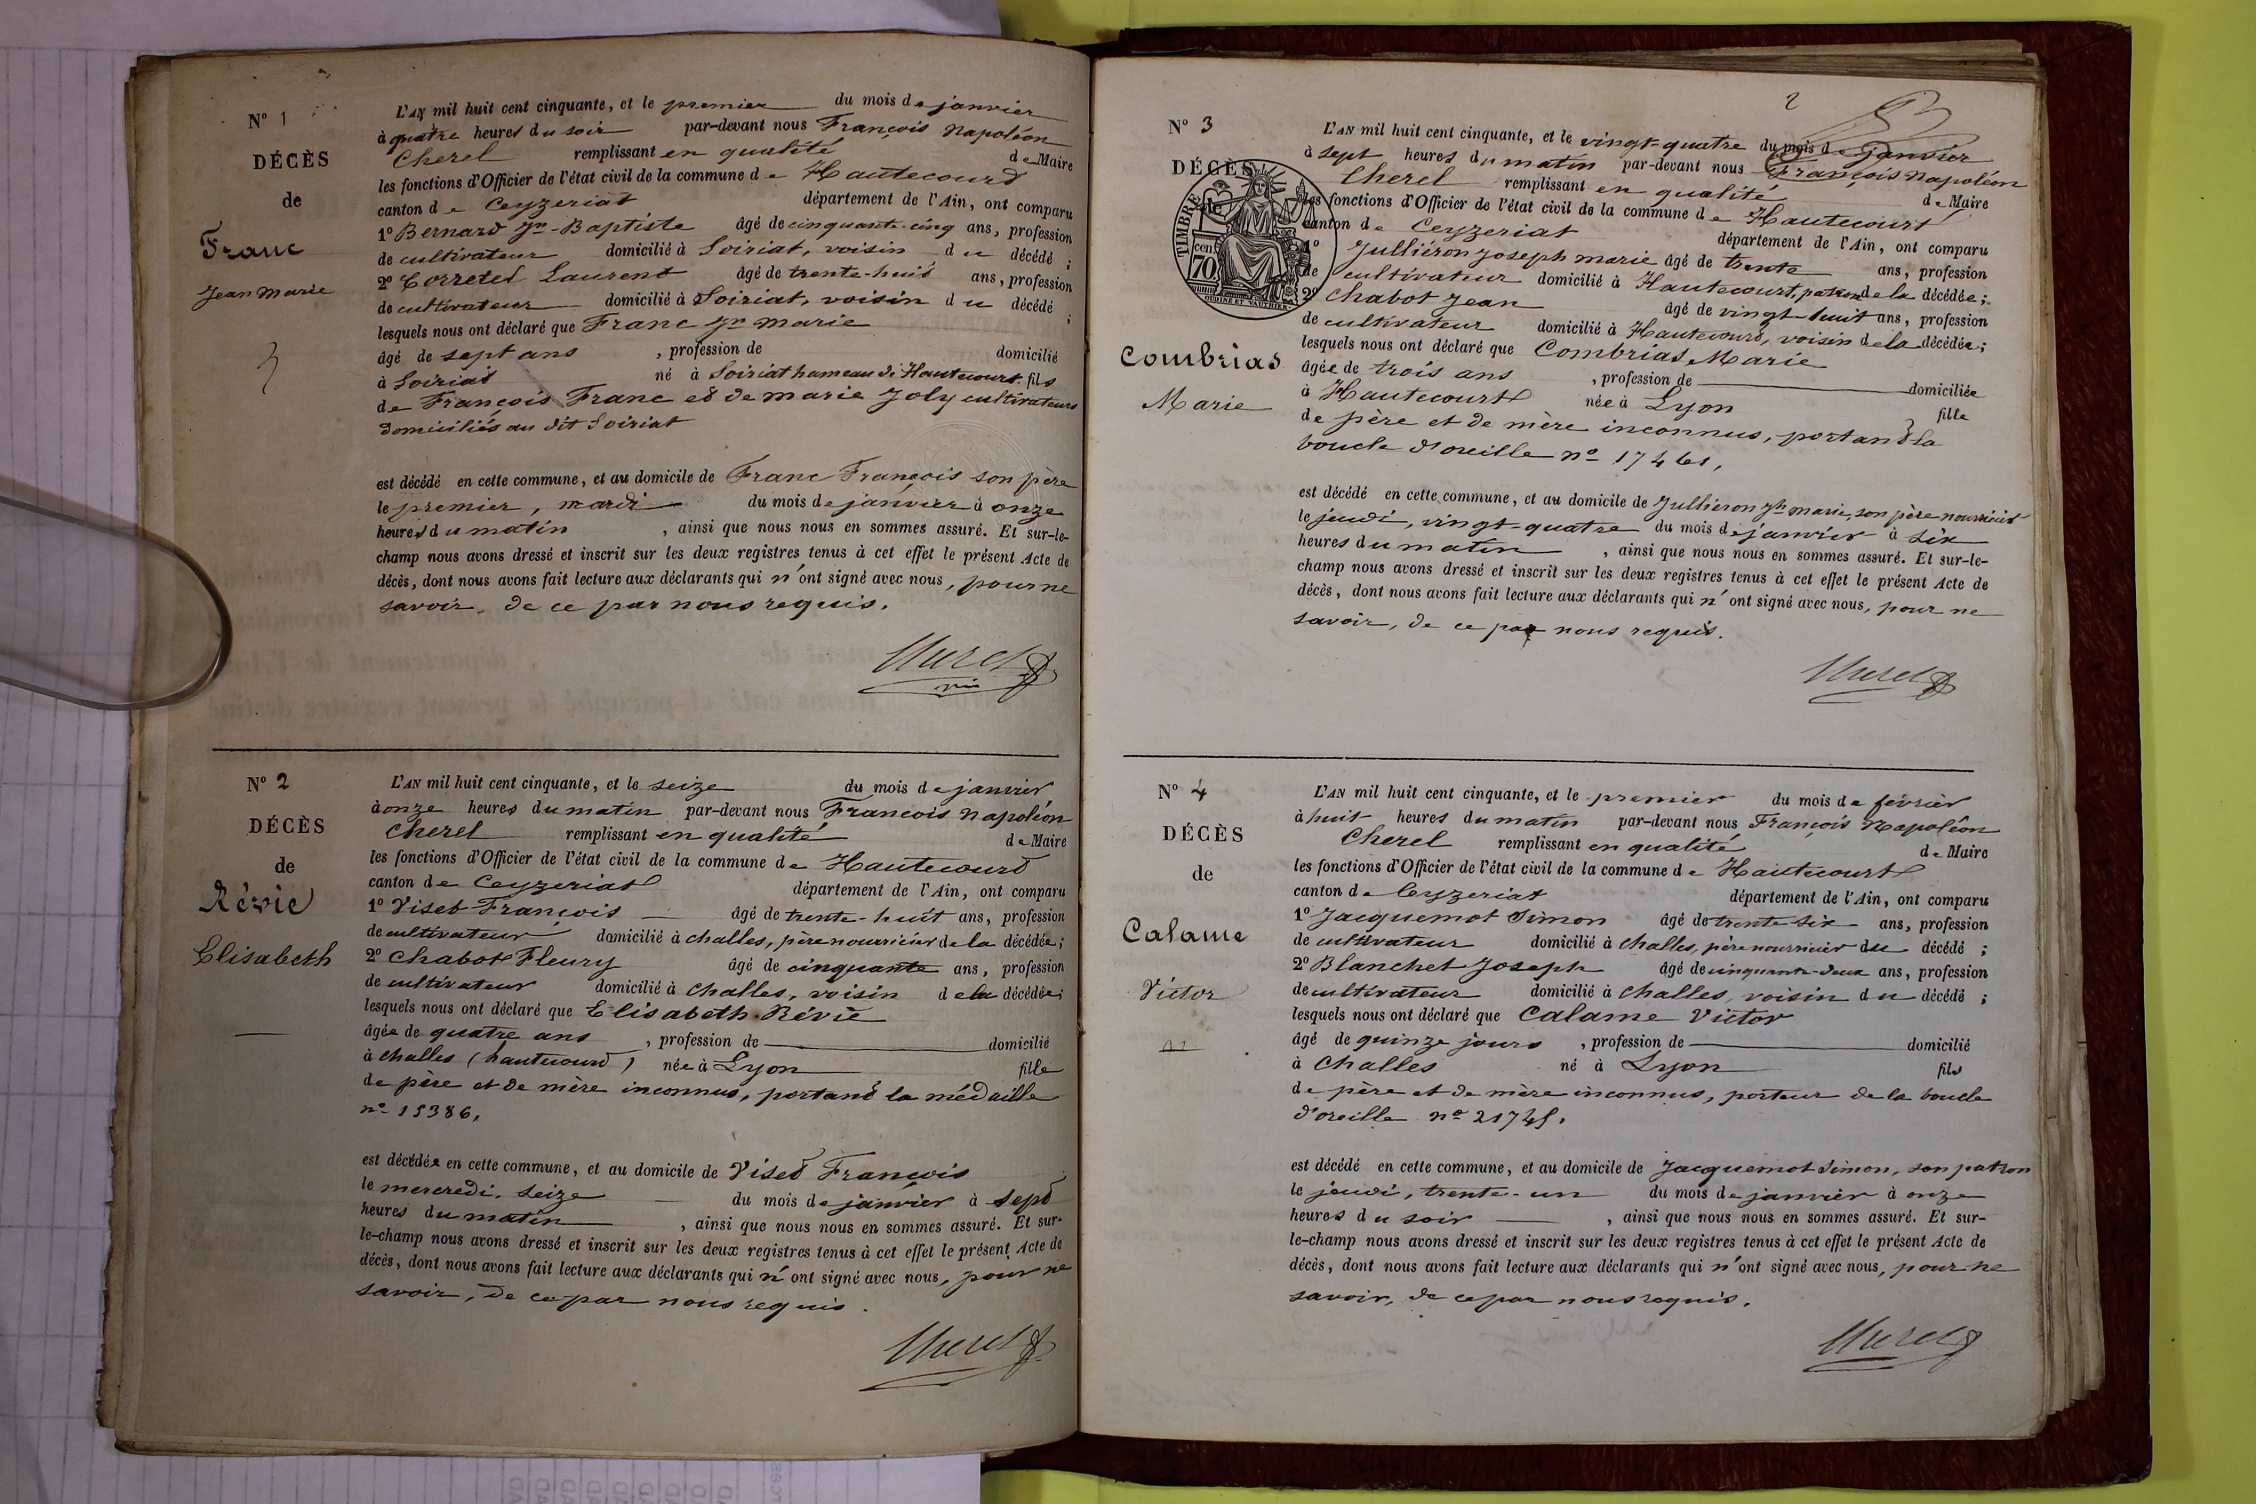 Nº 1
DÉCÈS
de
Franc
Jean Marie
L'AN mil huit cent cinquante, et le premier du mois de janvier
à quatre heures du soir par-devant nous François Napoléon
Cherel remplissant en qualité de Maire
les fonctions d'Officier de l'état civil de la commune de Hautecourt
canton de Ceyzeriat département de l'Ain, ont comparu
1º Bernard Jn-Baptiste âgé de cinquante-cinq ans, profession
de cultivateur domicilié à Soiriat, voisin du décédé ;
2º Corretel Laurent âgé de trente-huit ans, profession
de cultivateur domicilié à Soiriat, voisin du décédé ;
lesquels nous ont déclaré que Franc Jn Marie
âgé de sept ans , profession de domicilié
à Soiriat né à Soiriat hameau de Hautecourt fils
de François Franc et de marie Joly cultivateurs
domiciliés au dit Soiriat
est décédé en cette commune, et au domicile de Franc François son père
le premier, mardi du mois de janvier à onze
heures du matin , ainsi que nous nous en sommes assuré. Et sur-le-
champ nous avons dressé et inscrit sur les deux registres tenus à cet effet le présent Acte de
décès, dont nous avons fait lecture aux déclarants qui n'ont signé avec nous, pour ne
savoir, de ce par nous requis.
Cherel
Nº 2
DÉCÈS
de
Révie
Elisabeth
L'AN mil huit cent cinquante, et le seize du mois de janvier
à onze heures du matin par-devant nous François Napoléon
Cherel remplissant en qualité de Maire
les fonctions d'Officier de l'état civil de la commune de Hautecourt
canton de Ceyzeriat département de l'Ain, ont comparu
1º Viset François âgé de trente-huit ans, profession
de cultivateur domicilié à challes, père nourricier de la décédée ;
2º Chabot Fleury âgé de cinquante ans, profession
de cultivateur domicilié à challes, voisin de la décédée ;
lesquels nous ont déclaré que Elisabeth Révie
âgée de quatre ans , profession de domicilié
à challes (hautecourt) née à Lyon fille
de père et de mère inconnus, portant la médaille
nº 15386,
est décédée en cette commune, et au domicile de Viset François
le mercredi, seize du mois de janvier à sept
heures du matin , ainsi que nous nous en sommes assuré. Et sur-
le-champ nous avons dressé et inscrit sur les deux registres tenus à cet effet le présent Acte de
décès, dont nous avons fait lecture aux déclarants qui n'ont signé avec nous, pour ne
savoir, de ce par nous requis.
Cherel
2
Nº 3
DÉCÈS
de
TIMBRE
70 cent
OUDINÉ ET VAUTHIER
Combrias
Marie
L'AN mil huit cent cinquante, et le vingt-quatre du mois de janvier
à sept heures du matin par-devant nous François Napoléon
Cherel remplissant en qualité de Maire
les fonctions d'Officier de l'état civil de la commune de Hautecourt
canton de Ceyzeriat département de l'Ain, ont comparu
1º Julliéron joseph marie âgé de trente ans, profession
de cultivateur domicilié à Hautecourt, patron de la décédée ;
2º Chabot Jean âgé de vingt-huit ans, profession
de cultivateur domicilié à Hautecourt, voisin de la décédée ;
lesquels nous ont déclaré que Combrias Marie
âgée de trois ans , profession de domiciliée
à Hautecourt née à Lyon fille
de père et de mère inconnus, portant la
boucle d'oreille nº 17461,
est décédé en cette commune, et au domicile de Julliéron jh marie, son père nourricier
le jeudi, vingt-quatre du mois de janvier à six
heures du matin , ainsi que nous nous en sommes assuré. Et sur-le-
champ nous avons dressé et inscrit sur les deux registres tenus à cet effet le présent Acte de
décès, dont nous avons fait lecture aux déclarants qui n'ont signé avec nous, pour ne
savoir, de ce par nous requis.
Cherel
Nº 4
DÉCÈS
de
Calame
Victor
L'AN mil huit cent cinquante, et le premier du mois de février
à huit heures du matin par-devant nous François Napoléon
Cherel remplissant en qualité de Maire
les fonctions d'Officier de l'état civil de la commune de Hautecourt
canton de Ceyzeriat département de l'Ain, ont comparu
1º Jacquemot Simon âgé de trente six ans, profession
de cultivateur domicilié à challes, père nourricier du décédé ;
2º Blanchet Joseph âgé de cinquante-deux ans, profession
de cultivateur domicilié à challes, voisin du décédé ;
lesquels nous ont déclaré que Calame Victor
âgé de quinze jours , profession de domicilié
à challes né à Lyon fils
de père et de mère inconnus, porteur de la boucle
d'oreille nº 21745.
est décédé en cette commune, et au domicile de Jacquemot Simon, son patron
le jeudi, trente-un du mois de janvier à onze
heures du soir , ainsi que nous nous en sommes assuré. Et sur-
le-champ nous avons dressé et inscrit sur les deux registres tenus à cet effet le présent Acte de
décès, dont nous avons fait lecture aux déclarants qui n'ont signé avec nous, pour ne
savoir, de ce par nous requis.
Cherel